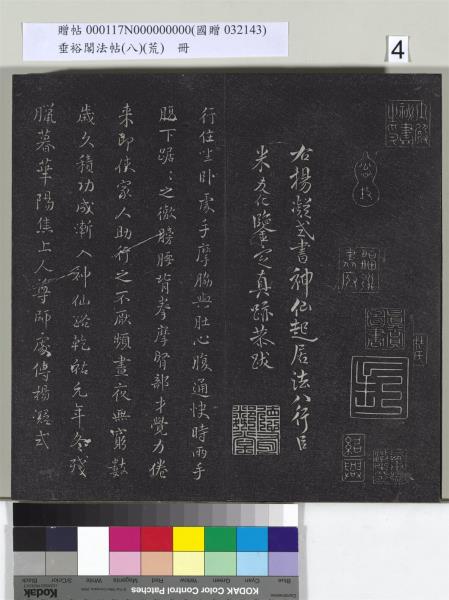 贈帖 000117N000000000(國贈 032143)
垂裕閣法帖(八)(荒) 冊
4
右楊凝式書神仙起居法八行臣
米友仁鑒定真跡恭跋
行住坐卧處手摩脇與肚心腹通快時兩手
腸下踞〻之徹膀腰背拳摩腎部才覺力倦
来即使家人助行之不厭頻晝夜無窮數
歲久積功成漸入神仙路乾祐元年冬殘
臘暮華陽焦上人尊師處傳楊凝式
紹興
Blue Cyan Green Yellow Red Magenta White 3/Color Black
Kodak
KODAK Color Control Patches